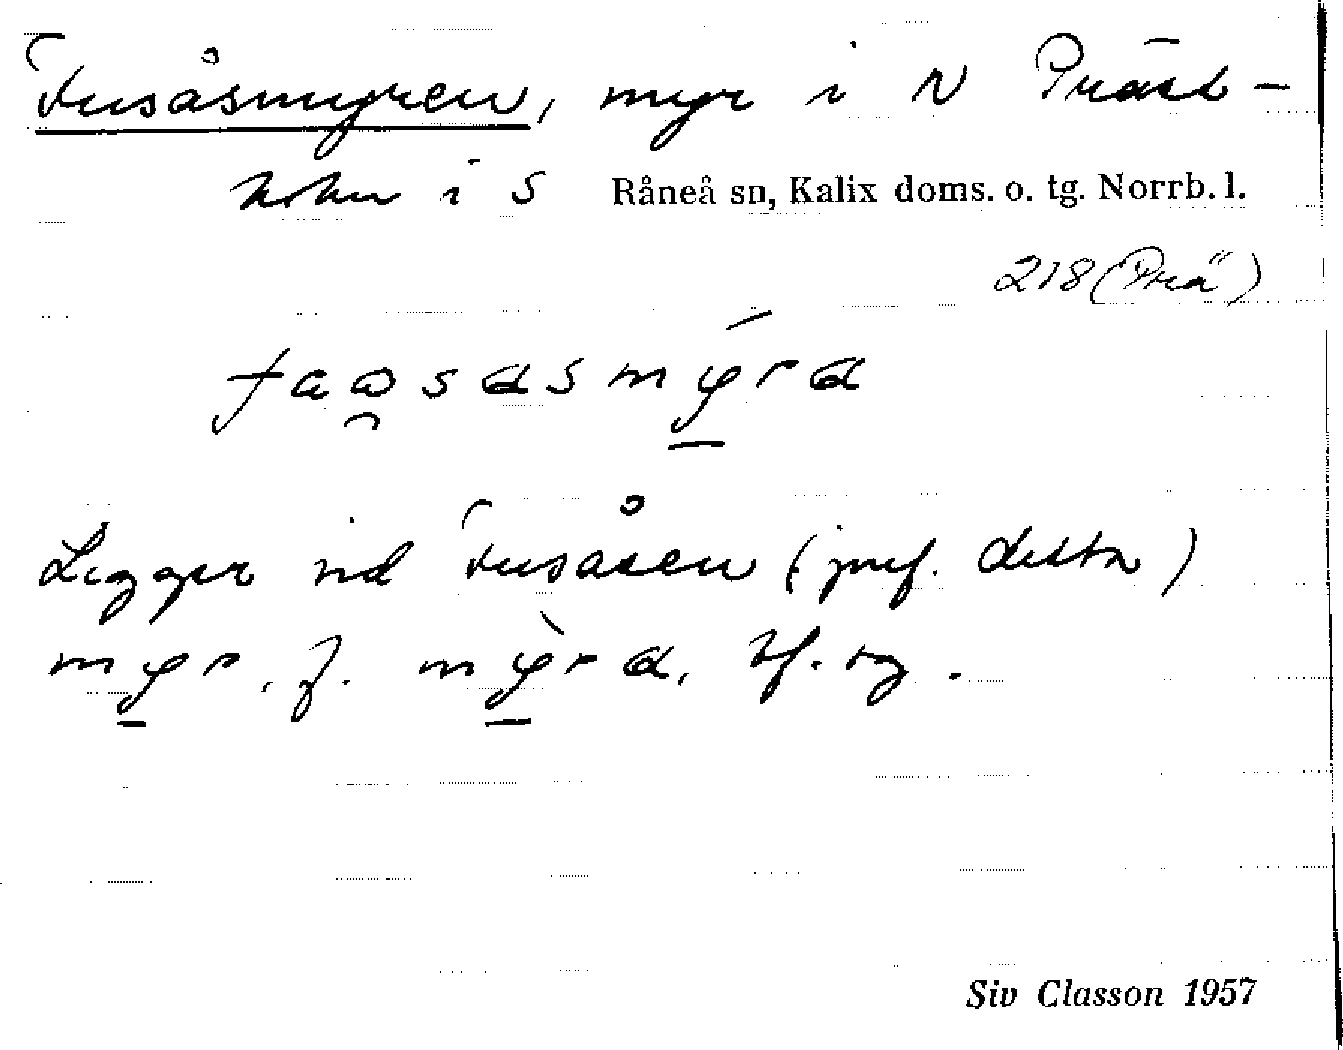 Fusåsmyren, myr i N Präst-
holm i S Råneå sn, Kalix doms. o. tg. Norrb. l.
218 (Prä)
Ligger vid Fusåsen (jmf. detta)
myr, f. myra, bf. sg.
Siv Classon 1957